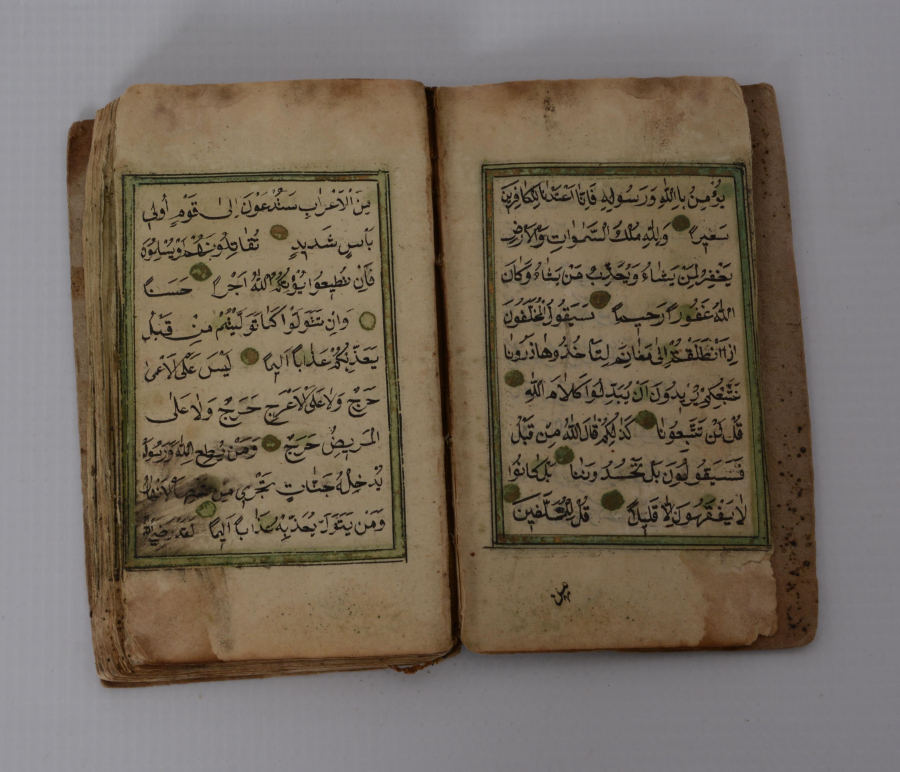 يؤمن بالله ورسوله فانا اعتدنا للكافرين
سعيرا ولله ملك السموات والارض
يغفر لمن يشاء ويعذب من يشاء وكان
الله غفورا رحيما سيقول المخلفون
اذا انطلقتم الى مغانم لتاخذوها ذرونا
نتبعكم يريدون ان يبدلوا كلام الله
قل لن تتبعونا كذلكم قال الله من قبل
فسيقولون بل تحسدوننا بل كانوا
لا يفقهون الا قليلا قل للمخلفين
من
من الاعراب ستدعون الى قوم اولى
باس شديد تقاتلونهم او يسلمون
فان تطيعوا يؤتكم الله اجرا حسنا
وان تتولوا كما توليتم من قبل
يعذبكم عذابا اليما ليس على الاعمى
حرج ولا على الاعرج حرج ولا على
المريض حرج ومن يطع الله ورسوله
يدخله جنات تجرى من تحتها الانهار
ومن يتول يعذبه عذابا اليما لقد رضى الله